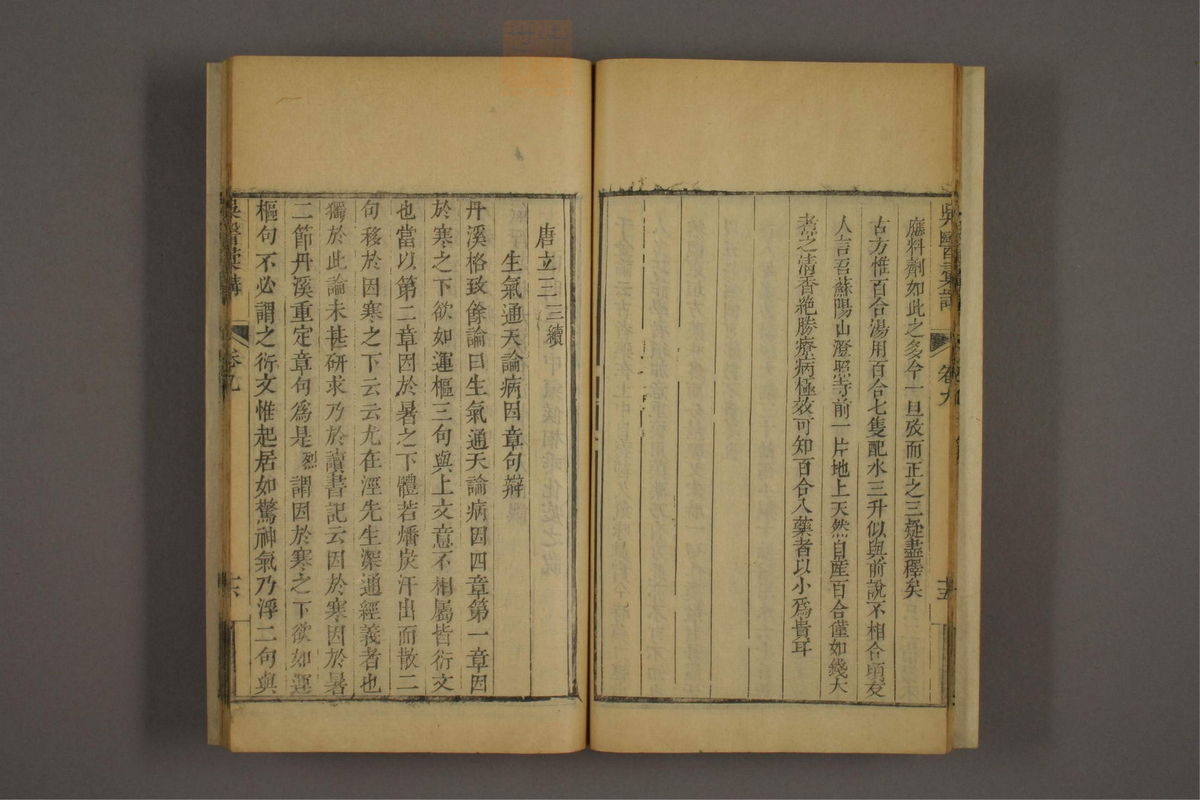 吳醫彙講
卷九
十五
應料劑如此之多今一旦攷而正之三疑盡釋矣
古方惟百合湯用百合七隻配水三升似與前說不相合頃友
人言召蘇陽山澄照寺前一片地上天然自産百合僅如錢大
煮之清香絶勝療病極效可知百合入藥者以小爲貴耳
唐立三三續
生氣通天論病因章句辯
丹溪格致餘論曰生氣通天論病因四章第一章因
於寒之下欲如運樞三句與上文意不相屬皆衍文
也當以第二章因於暑之下體若燔炭汗出而散二
句移於因寒之下云云尤在涇先生深通經義者也
獨於此論未甚研求乃於讀書記云因於寒因於暑
二節丹溪重定章句爲是烈謂因於寒之下欲如運
樞句不必謂之衍文惟起居如驚神氣乃浮二句與
吳醫彙講
卷九
十六